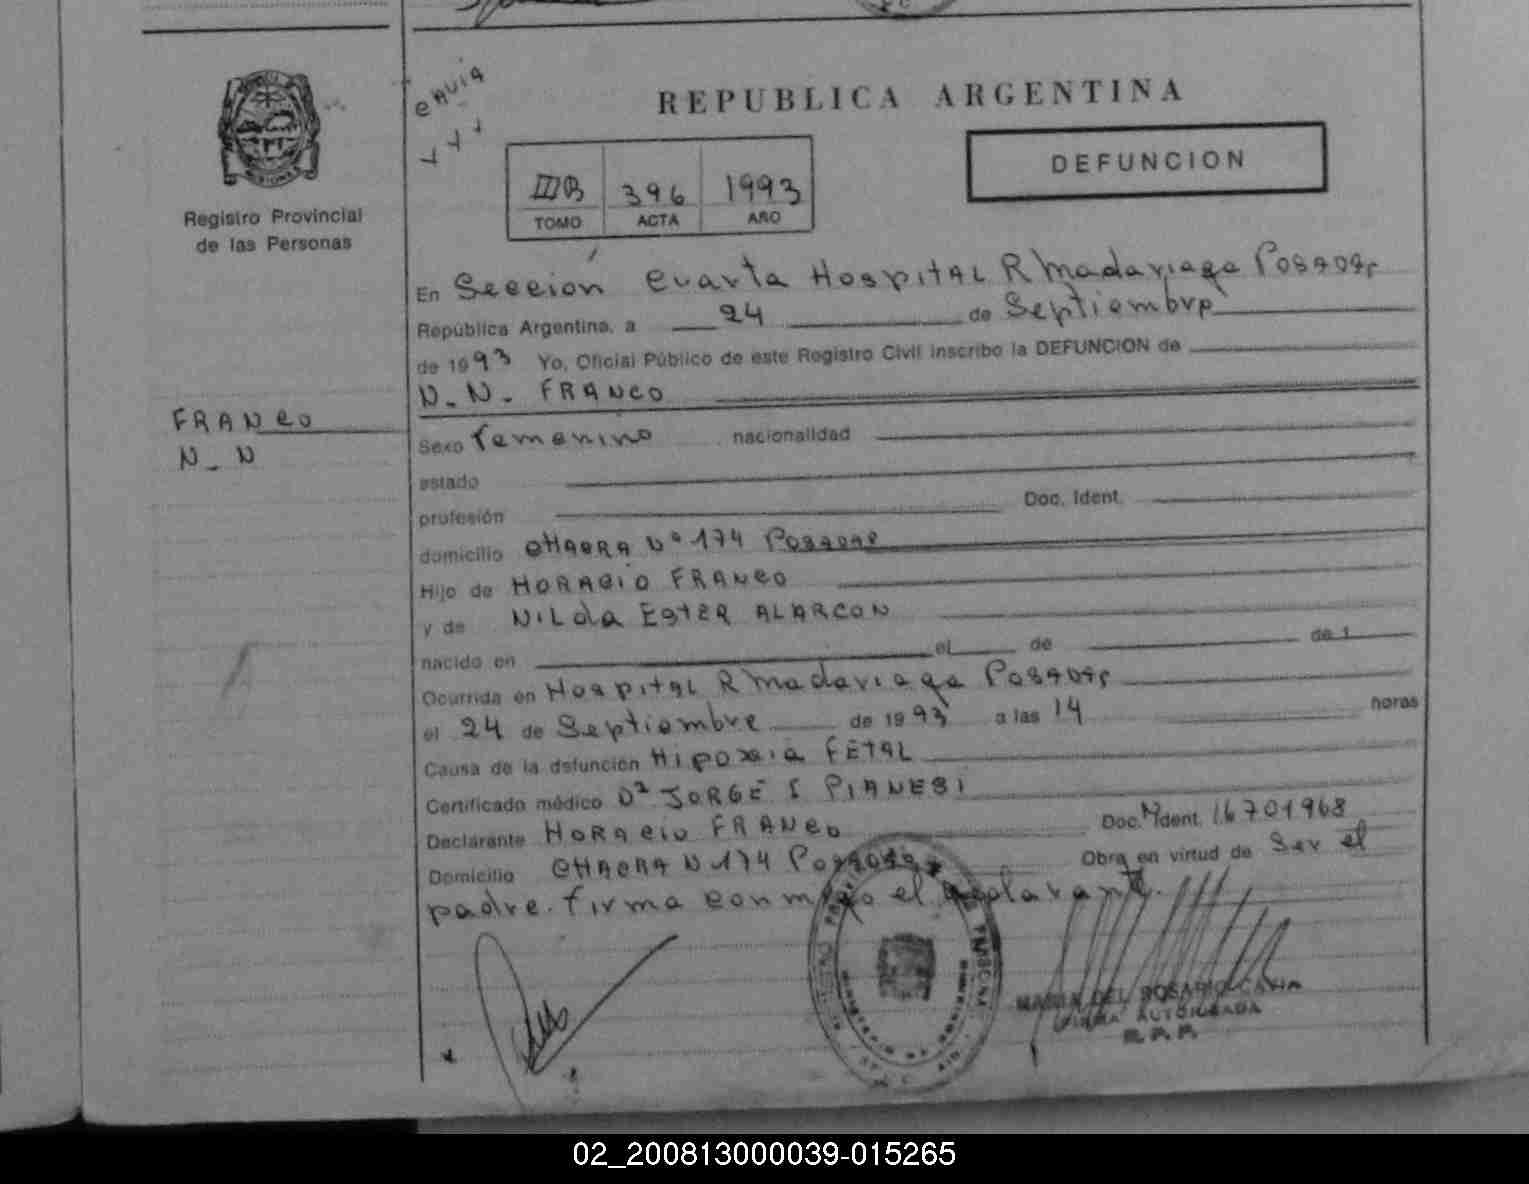 REPUBLICA ARGENTINA
DEFUNCION
IIIB 396 1993
TOMO ACTA AÑO
Registro Provincial
de las Personas
En Sección Cuarta Hospital R Madariaga Posadas
República Argentina, a 24 de Septiembre
de 1993 Yo, Oficial Público de este Registro Civil inscribo la DEFUNCION de
N.N. FRANCO
FRANCO
N-N
Sexo Femenino nacionalidad
estado
profesión Doc. Ident.
domicilio CHACRA Nº 174 Posadas
Hijo de HORACIO FRANCO
y de NILda EstER ALARCON
nacido en el de de 1
Ocurrida en Hospital R Madariaga Posadas
el 24 de Septiembre de 1993 a las 14 horas
Causa de la defunción Hipoxia FETAL
Certificado médico Dr JORGE I PIANESI
Declarante HORACIO FRANCO Doc. Ident. 16701968
Domicilio CHACRA N 174 Posadas Obra en virtud de Ser el
padre. firma conmigo el declarante.
MARIA DEL ROSARIO
FIRMA AUTORIZADA
R.P.P.
02_200813000039-015265